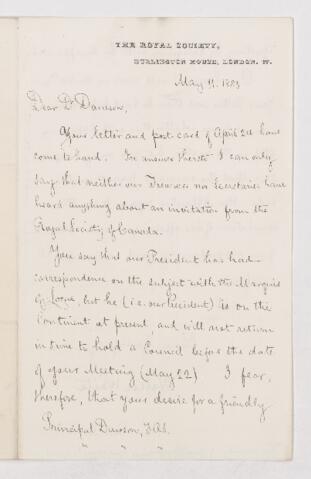 THE ROYAL SOCIETY,
BURLINGTON HOUSE, LONDON. W.
May 11. 1883
Dear Dr Dawson,
Your letter and post-card of April 2d have
come to hand. In answer thereto I can only
say that neither our Treasurer nor Secretaries have
heard anything about an invitation from the
Royal Society of Canada.
You say that our President has had
correspondence on the subject with the Marquis
of Lorne, but he (i.e. our President) is on the
Continent at present, and will not return
in time to hold a Council before the date
of your Meeting (May 22) I fear,
therefore, that your desire for a friendly
Principal Dawson, F.R.S.
" " "